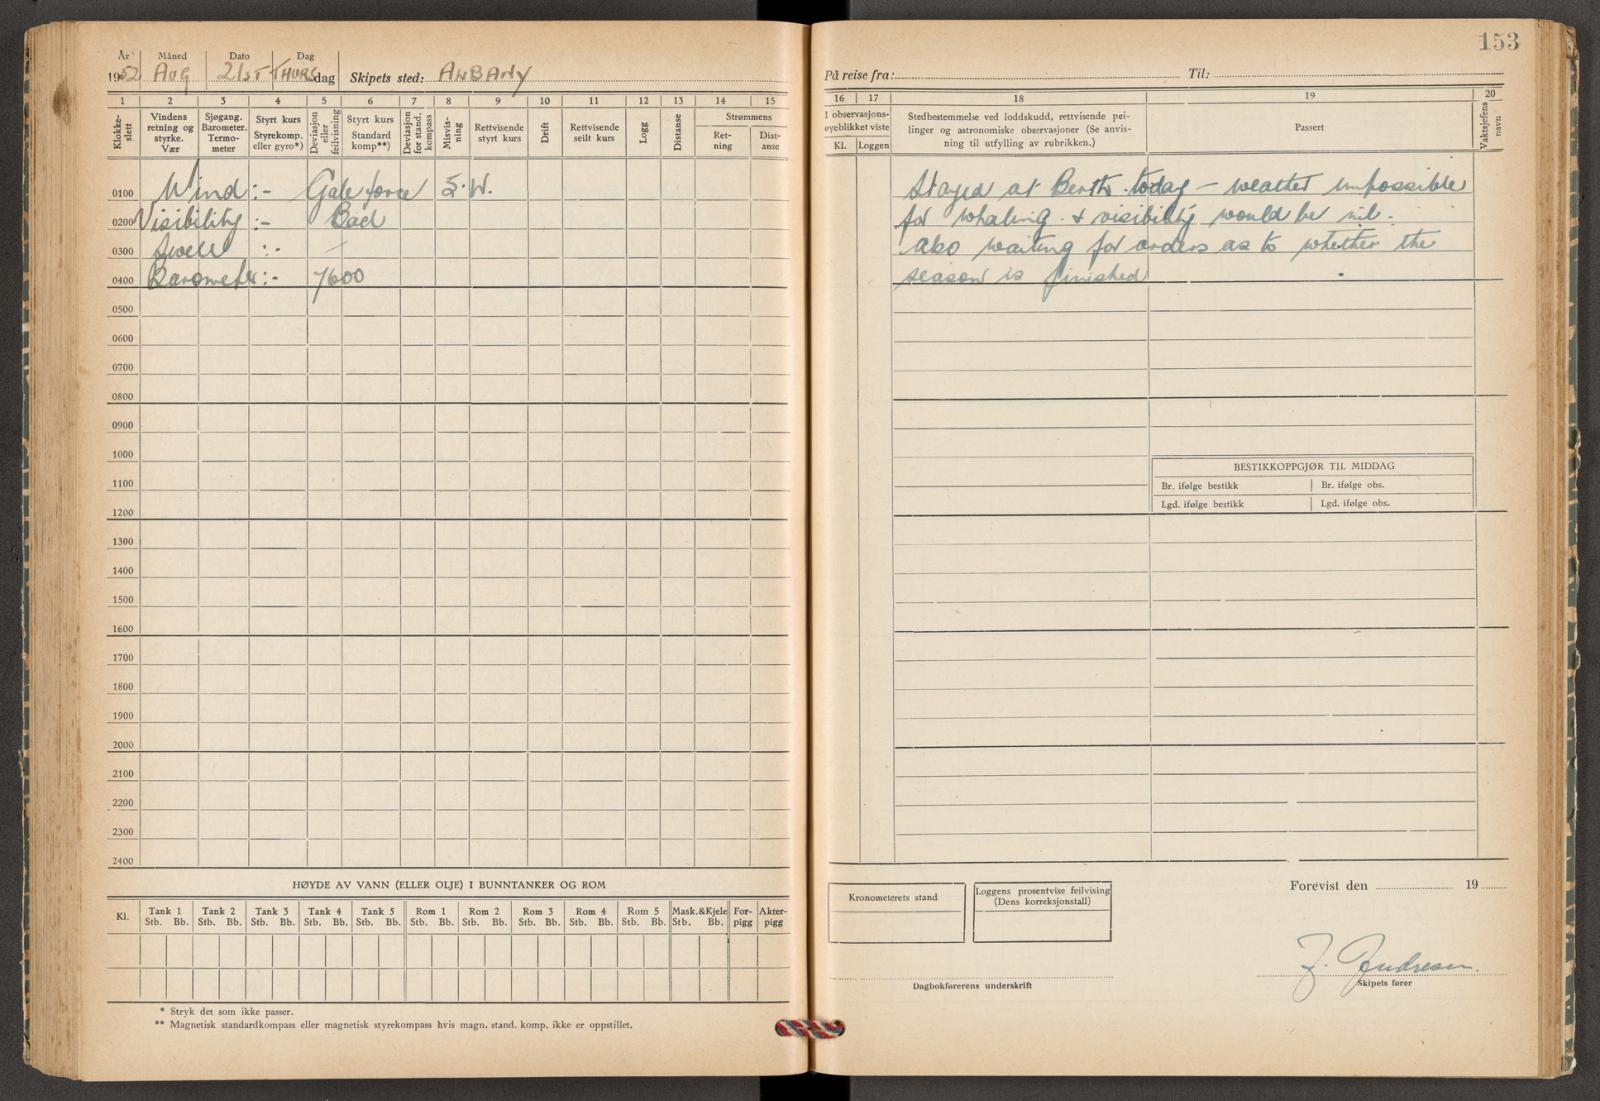 153
År Måned Dato Dag
1952 AUG 21ST THURSdag Skipets sted: ALBANY
På reise fra: Til:
1 2 3 4 5 6 7 8 9 10 11 12 13 14 15
Klokke-slett
Vindens retning og styrke. Vær
Sjøgang. Barometer. Termo-meter
Styrt kurs Styrekomp. eller gyro*)
Deviasjon eller feilvisning
Styrt kurs Standard komp**)
Deviasjon for stand. kompass
Misvis-ning
Rettvisende styrt kurs
Drift
Rettvisende seilt kurs
Logg
Distanse
Strømmens
Ret-ning
Dist-anse
16 17 18 19 20
I observasjons-øyeblikket viste
Kl. Loggen
Stedbestemmelse ved loddskudd, rettvisende pei-
linger og astronomiske observasjoner (Se anvis-
ning til utfylling av rubrikken.)
Passert
Vaktsjefens navn
0100 Wind :- Gale force S.W.
0200 Visibility :- Bad
0300 Swell :- —
0400 Barometer :- 7600
0500
0600
0700
0800
0900
1000
1100
1200
1300
1400
1500
1600
1700
1800
1900
2000
2100
2200
2300
2400
Stayed at Berth today – weather impossible
for whaling & visibility would be nil.
Also waiting for orders as to whether the
season is finished
BESTIKKOPPGJØR TIL MIDDAG
Br. ifølge bestikk Br. ifølge obs.
Lgd. ifølge bestikk Lgd. ifølge obs.
HØYDE AV VANN (ELLER OLJE) I BUNNTANKER OG ROM
Kl. Tank 1 Tank 2 Tank 3 Tank 4 Tank 5 Rom 1 Rom 2 Rom 3 Rom 4 Rom 5 Mask.&Kjele For-pigg Akter-pigg
Stb. Bb. Stb. Bb. Stb. Bb. Stb. Bb. Stb. Bb. Stb. Bb. Stb. Bb. Stb. Bb. Stb. Bb. Stb. Bb. Stb. Bb.
* Stryk det som ikke passer.
** Magnetisk standardkompass eller magnetisk styrekompass hvis magn. stand. komp. ikke er oppstillet.
Kronometerets stand
Loggens prosentvise feilvising
(Dens korreksjonstall)
Forevist den 19
Dagbokførerens underskrift
Andresen.
Skipets fører